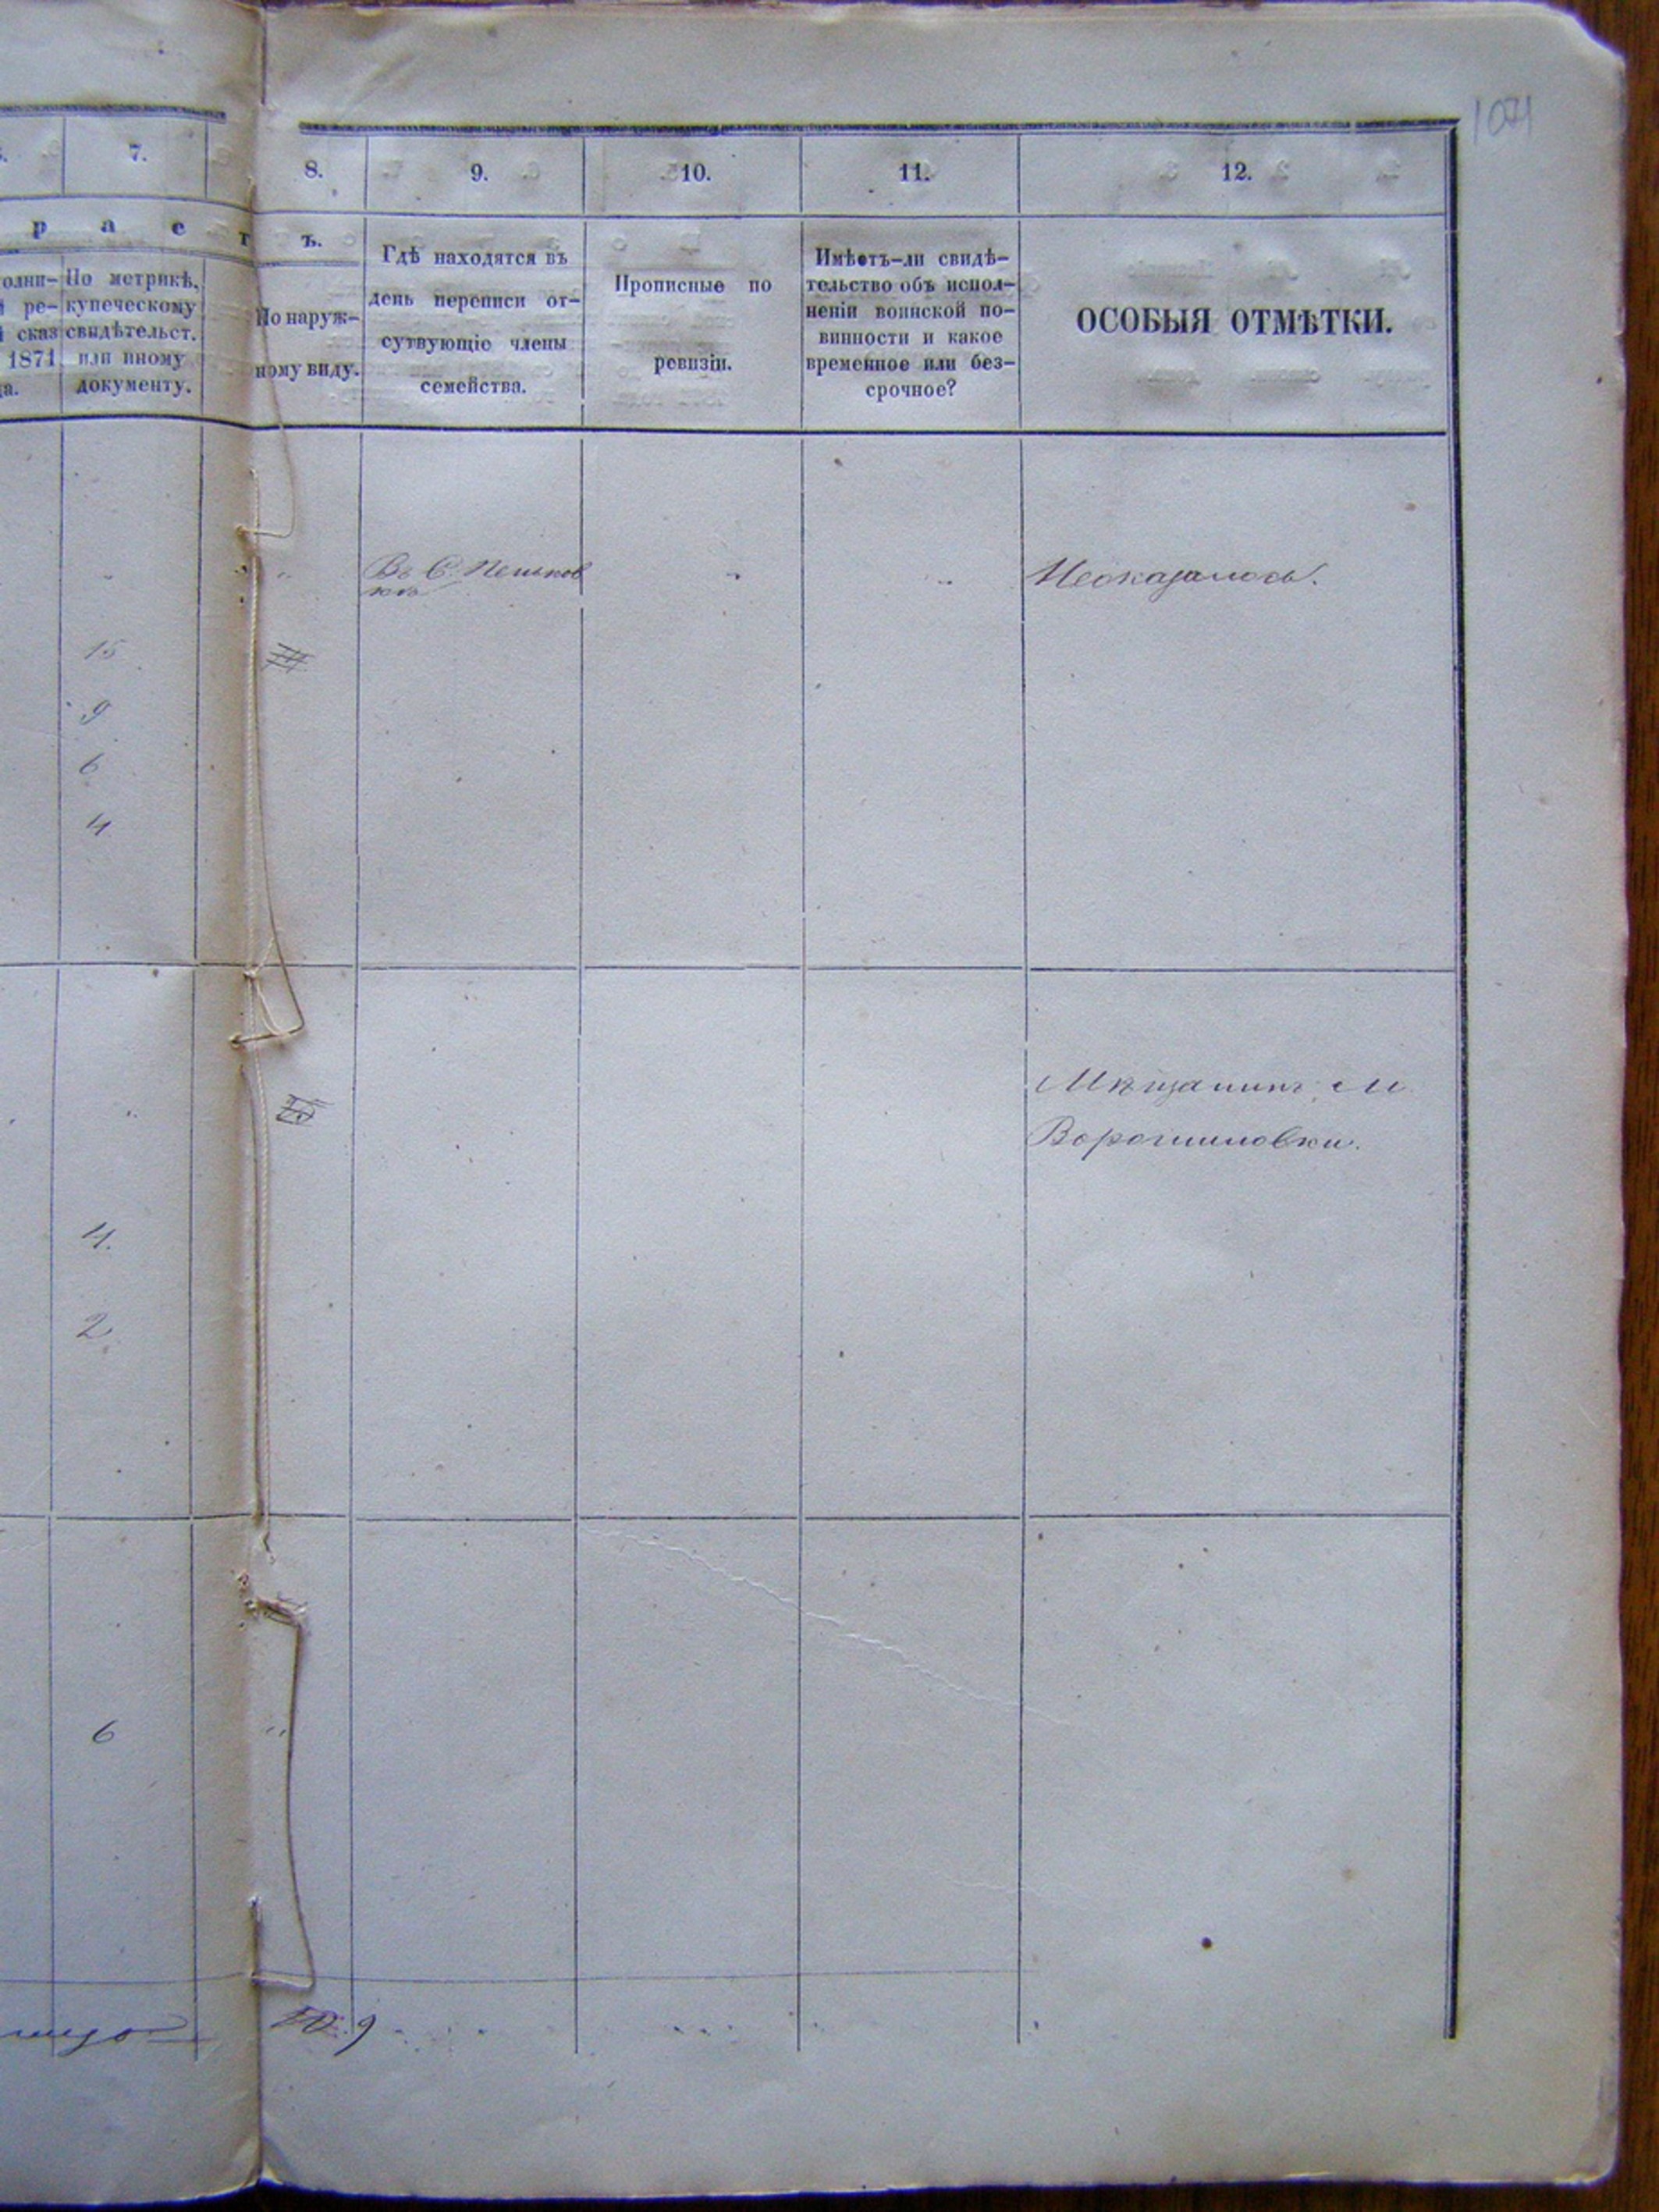 1071
7.
8.
9.
10.
11.
12.
р а с т ъ.
олни-
ре-
сказ
1871
да.
По метрикѣ,
купеческому
свидѣтельст.
или иному
документу.
По наруж-
ному виду.
Гдѣ находятся въ
день переписи от-
сутвующіе члены
семейства.
Прописные по
ревизіи.
Имѣетъ-ли свидѣ-
тельство объ испол-
неніи воинской по-
винности и какое
временное или без-
срочное?
ОСОБЫЯ ОТМѢТКИ.
Въ С. Пешков
кѣ
Неоказалось.
15
9
6
4
Мѣщанинъ М
Ворошиловки.
4.
2.
6
9